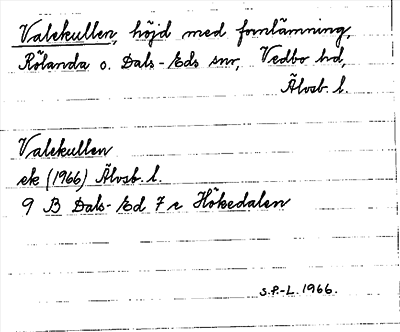 Valekullen, höjd med fornlämning,
Rölanda o. Dals-Eds snr, Vedbo hd,
Älvsb. l.
Valekullen
ek (1966) Älvsb. l.
9 B Dals-Ed 7 e Hökedalen
S.P.-L. 1966.